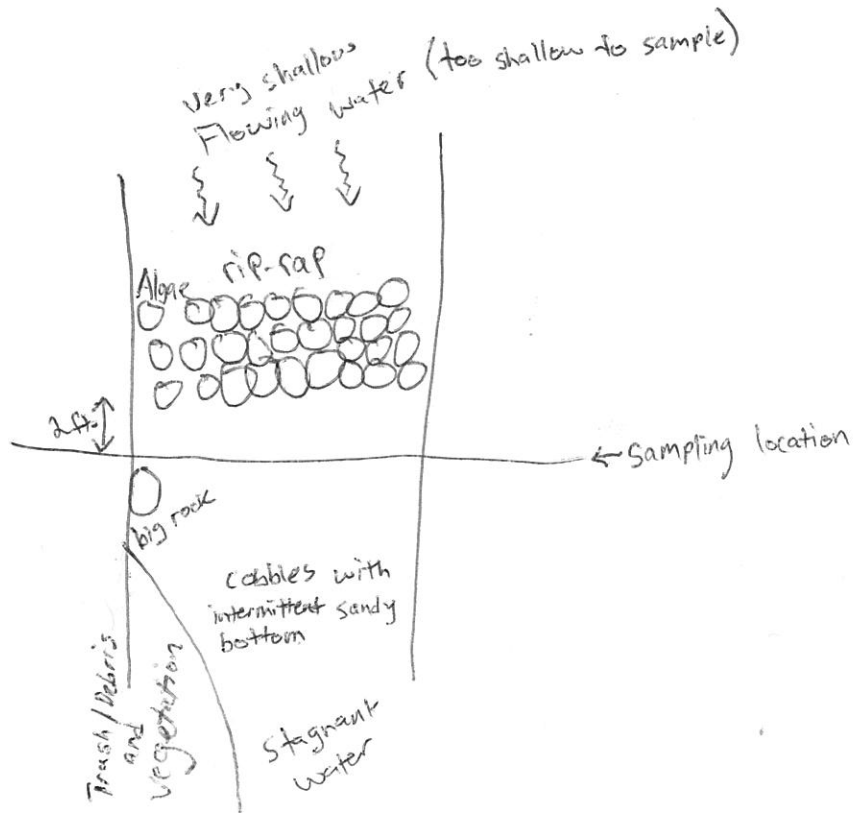 very shallow
Flowing water (too shallow to sample)
rip-rap
Algae
2ft.
← Sampling location
big rock
cobbles with
intermittent sandy
bottom
Trash/Debris
and
vegetation
Stagnant
water